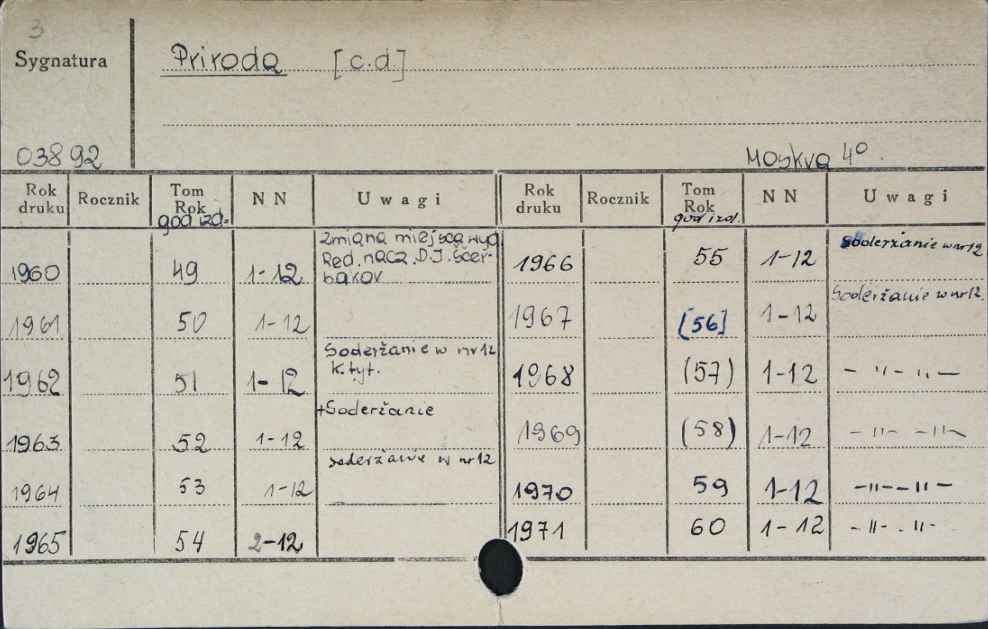 3
Sygnatura
Priroda [c.d.]
03892
Moskva 4°
Rok druku Rocznik Tom Rok god izd. NN Uwagi
1960 49 1-12 Zmiana miejsca wyd
Red. nacz. D.I. Ščer-
bakov
1961 50 1-12
1962 51 1-12 Soderžanie w nr 12
k.tyt.
1963 52 1-12 +Soderžanie
1964 53 1-12 soderžanie w nr 12
1965 54 2-12
Rok druku Rocznik Tom Rok god izd. NN Uwagi
1966 55 1-12 Soderžanie w nr 12
1967 [56] 1-12 Soderžanie w nr 12.
1968 (57) 1-12 - " - " -
1969 (58) 1-12 - " - - " -
1970 59 1-12 - " - - " -
1971 60 1-12 - " - . " -